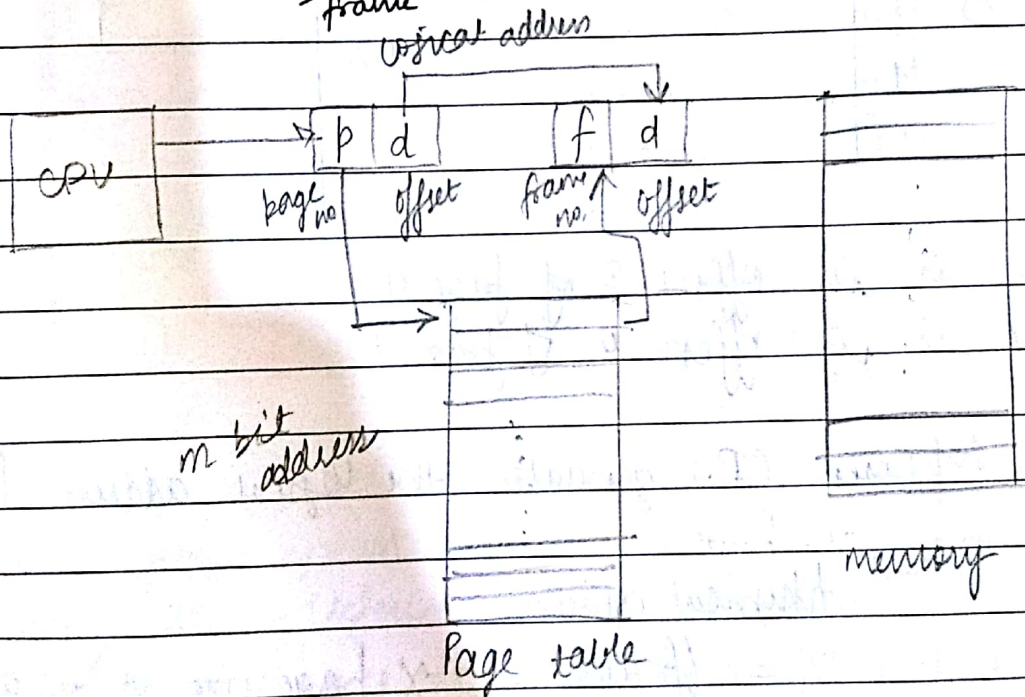 frame
logical address
CPU
p d
f d
page no
offset
frame no.
offset
m bit
address
memory
Page table